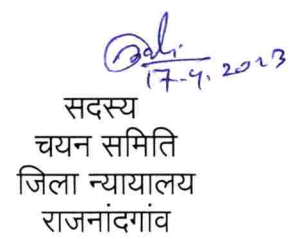 17-4. 2023
सदस्य
चयन समिति
जिला न्यायालय
राजनांदगांव